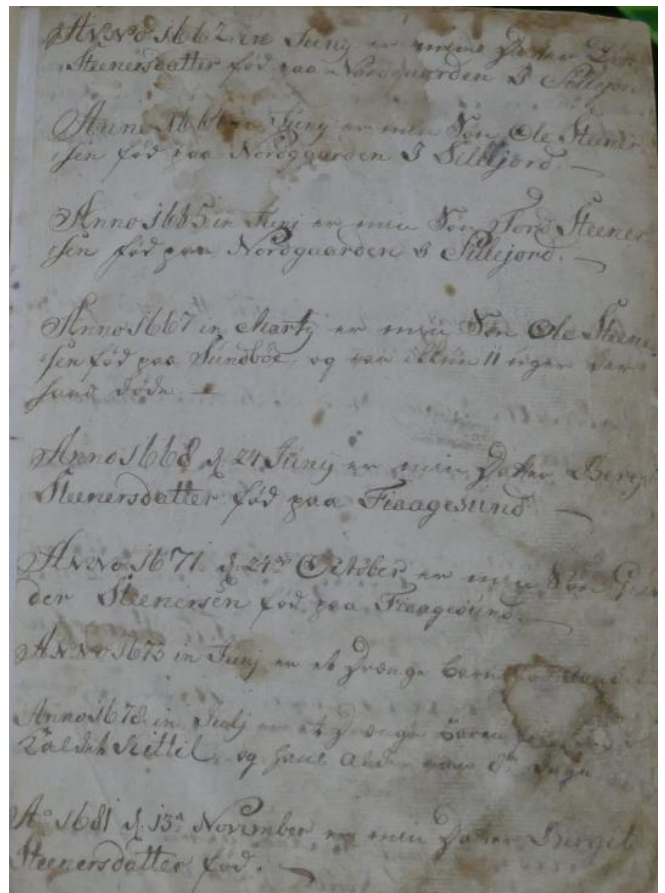 ANNO 1662 in Junij er min Dater
Steenersdatter fød paa Nordgaarden I Sillejor
Anno 1664 in Junij er min Søn Ole Steener
sen fød paa Nordgaarden I Sillejord.
Anno 1665 in Junj er min Søn Tord Steener
sen fød paa Nordgaarden I Sillejord.
Anno 1667 in Martij er min Søn Ole Steener
sen fød paa Sundbøe, og var ikkun 11 uger der
hand døde.
Anno 1668 d. 24 Junij er min Dater Berget
Steenersdatter fød paa Fiaagesund
ANNO 1671 d. 24de October er min Søn
der Steenersen fød paa Fiaagesund.
ANNO 1673 in Junj er et Drænge barn
Anno 1678 in Julj er et Drænge baren
Kaldet Kittil, og hans Alder var 8te Dage
Ao 1681 d. 13de November er min Dater Berget
Steenersdatter fød.